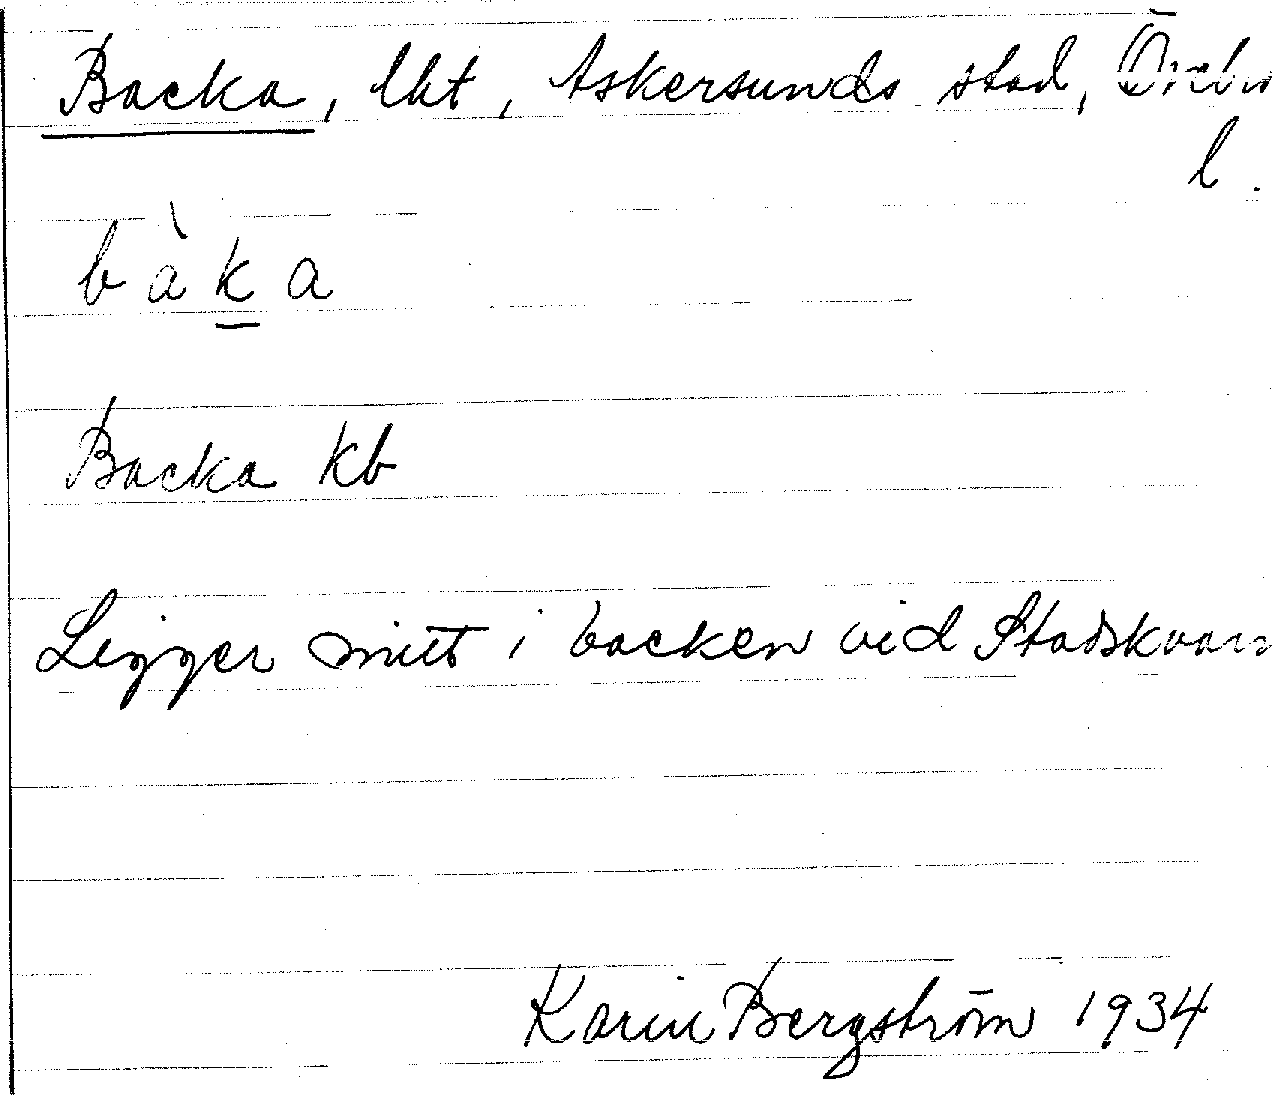 Backa, lht, Askersunds stad, Örebro
l.
bàka
Backa kb
Ligger mitt i backen vid Stadskvarn
Karin Bergström 1934